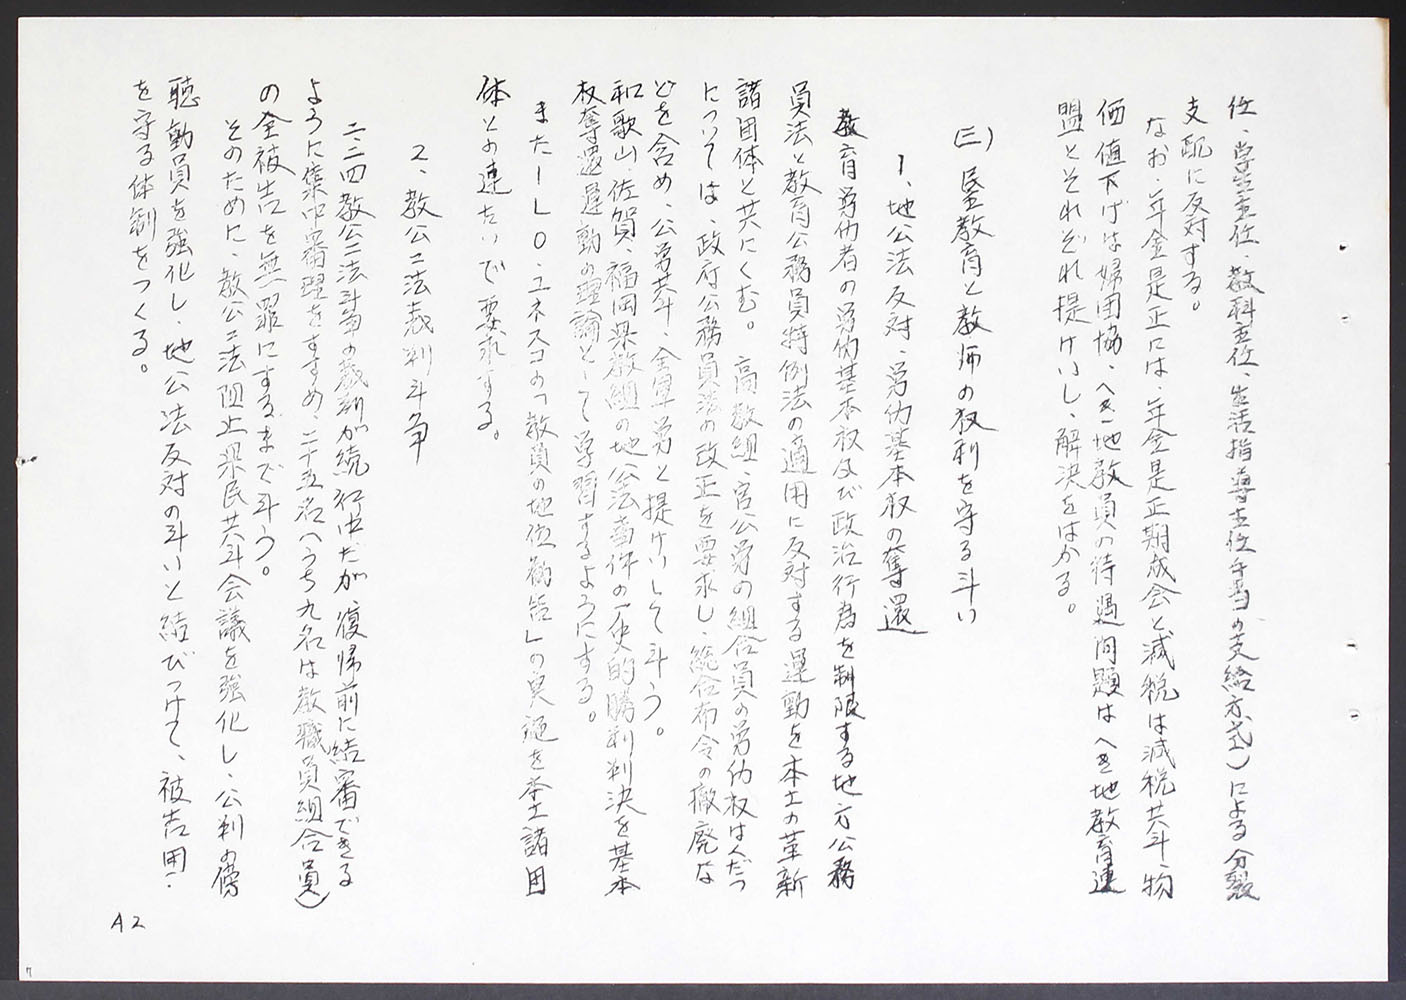 任、学年主任、教科主任、生活指導主任手当の支給方式)による分裂
支配に反対する。
なお、年金是正には、年金是正期成会と減税は減税共斗、物
価値下げは婦団協、へき地教員の待遇問題はへき地教育連
盟とそれぞれ提けいし、解決をはかる。
(三) 民主教育と教師の权利を守る斗い
1、地公法反対、労仂基本权の奪還
教育労仂者の労仂基本权及び政治行為を制限する地方公務
員法と教育公務員特例法の適用に反対する運動を本土の革新
諸団体と共にくむ。高教組、官公労の組合員の労仂权はくだつ
については、政府公務員法の改正を要求し、統合布令の撤廃な
どを含め、公労共斗、全軍労と提けいして斗う。
和歌山、佐賀、福岡県教組の地公法事件の一史的勝利判決を基本
权奪還運動の理論として学習するようにする。
またILO、ユネスコの「教員の地位勧告」の実施を本土諸団
体との連たいで要求する。
2、教公二法裁判斗争
二・二四教公二法斗争の裁判が続行中だが、復帰前に結審できる
ように集中審理をすすめ、二十五名(うち九名は教職員組合員)
の全被告を無罪にするまで斗う。
そのために、教公二法阻止県民共斗会議を強化し、公判の傍
聴動員を強化し、地公法反対の斗いと結びつけて、被告団
を守る体制をつくる。
A2
7